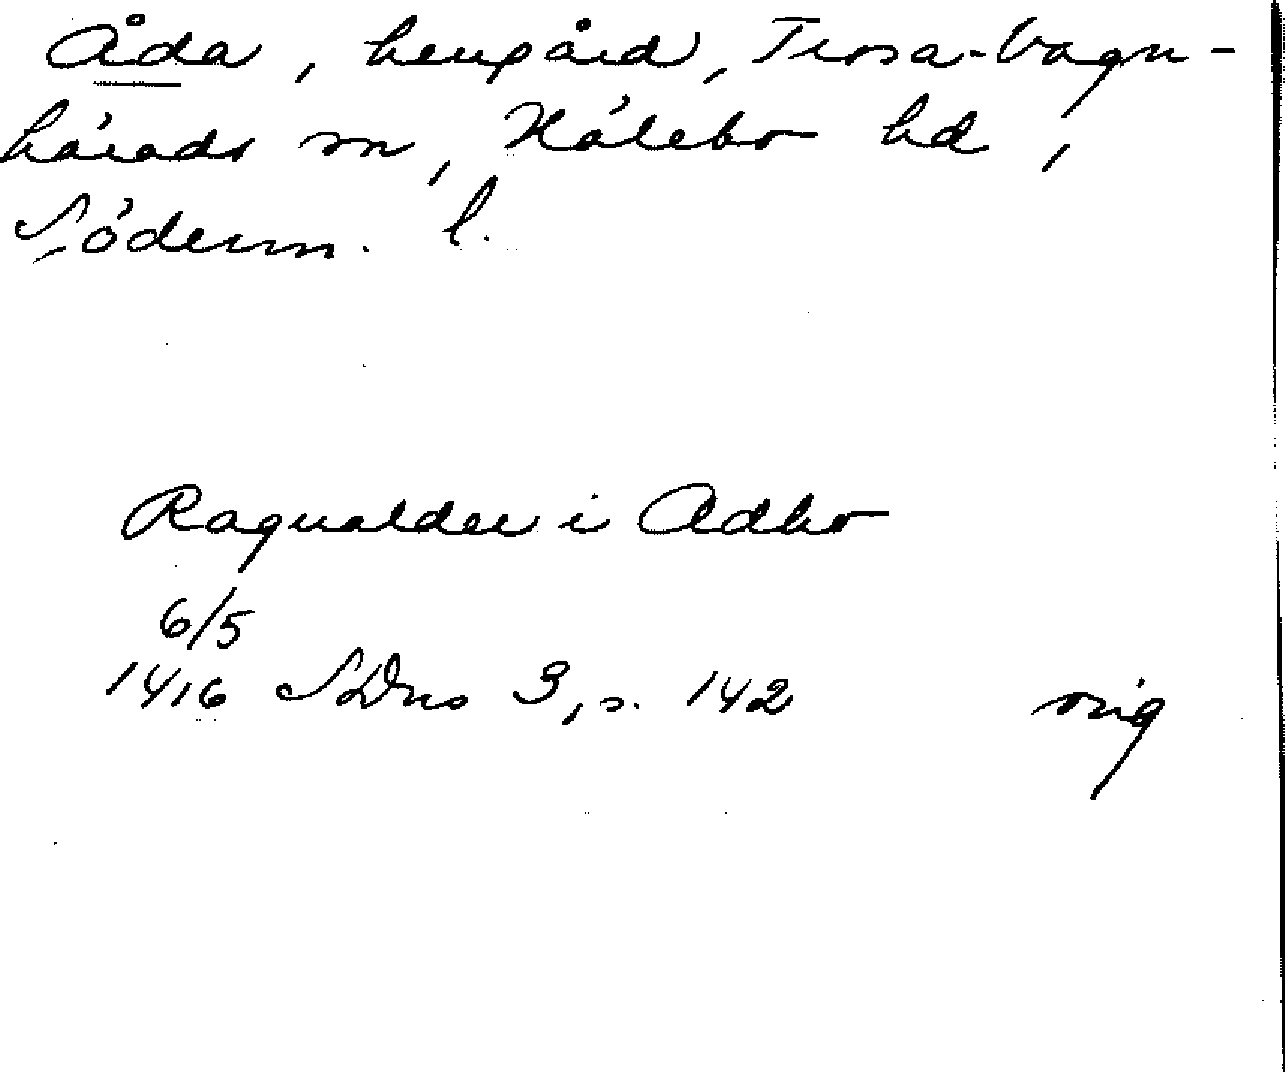 Åda, herrgård, Trosa-Vagn-
härads sn, Hölebo hd,
Söderm. l.
Ragualder i Adhо
6/5
1416 SDns 3, s. 142 orig